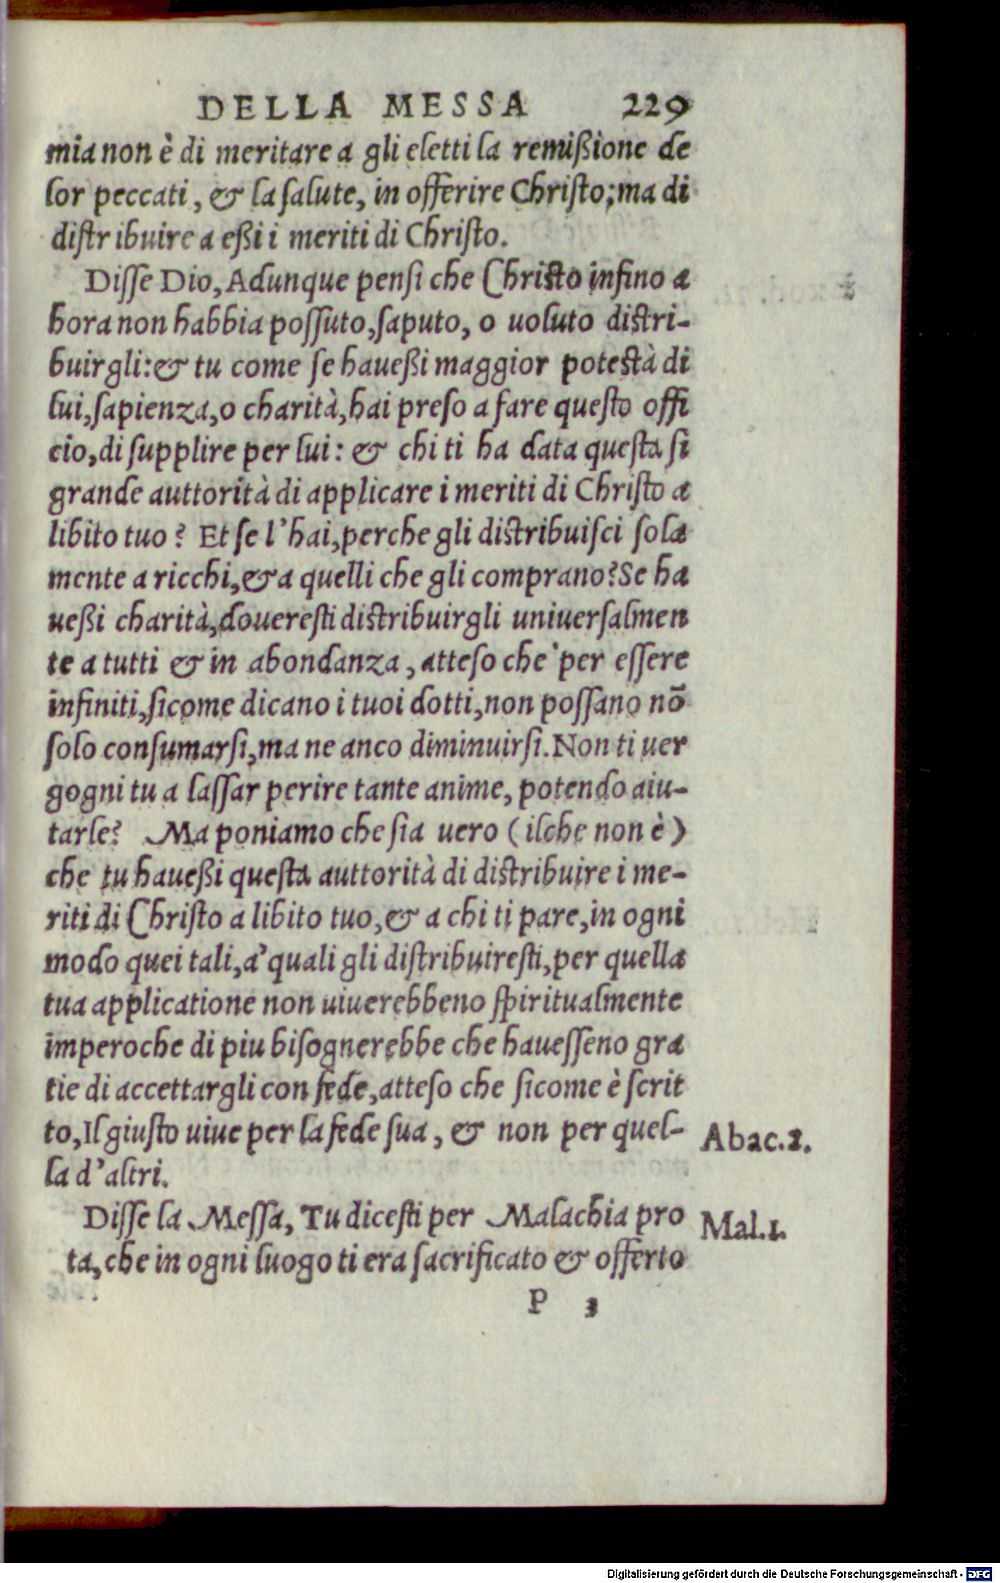 DELLA MESSA 229
mia non è di meritare a gli eletti la remißione de
lor peccati, & la salute, in offerire Christo; ma di
distribuire a eßi i meriti di Christo.
Disse Dio, Adunque pensi che Christo infino a
hora non habbia possuto, saputo, o uoluto distri-
buirgli: & tu come se haueßi maggior potestà di
lui, sapienza, o charità, hai preso a fare questo offi
cio, di supplire per lui: & chi ti ha data questa sì
grande auttorità di applicare i meriti di Christo a
libito tuo? Et se l'hai, perche gli distribuisci sola
mente a ricchi, & a quelli che gli comprano? Se ha
ueßi charità, doueresti distribuirgli uniuersalmen
te a tutti & in abondanza, atteso che per essere
infiniti, sicome dicano i tuoi dotti, non possano nō
solo consumarsi, ma ne anco diminuirsi. Non ti uer
gogni tu a lassar perire tante anime, potendo aiu-
tarle? Ma poniamo che sia uero (ilche non è)
che tu haueßi questa auttorità di distribuire i me-
riti di Christo a libito tuo, & a chi ti pare, in ogni
modo quei tali, a' quali gli distribuiresti, per quella
tua applicatione non uiuerebbeno spiritualmente
imperoche di piu bisognerebbe che hauesseno gra
tie di accettargli con fede, atteso che sicome è scrit
to, Il giusto uiue per la fede sua, & non per quel-
la d'altri.
Abac. 2.
Disse la Messa, Tu dicesti per Malachia pro
ta, che in ogni luogo ti era sacrificato & offerto
Mal. 1.
P 3
Digitalisierung gefördert durch die Deutsche Forschungsgemeinschaft - DFG